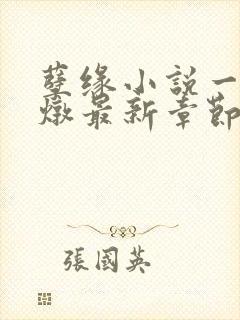 孽缘小説一
燉最新章節
張國英